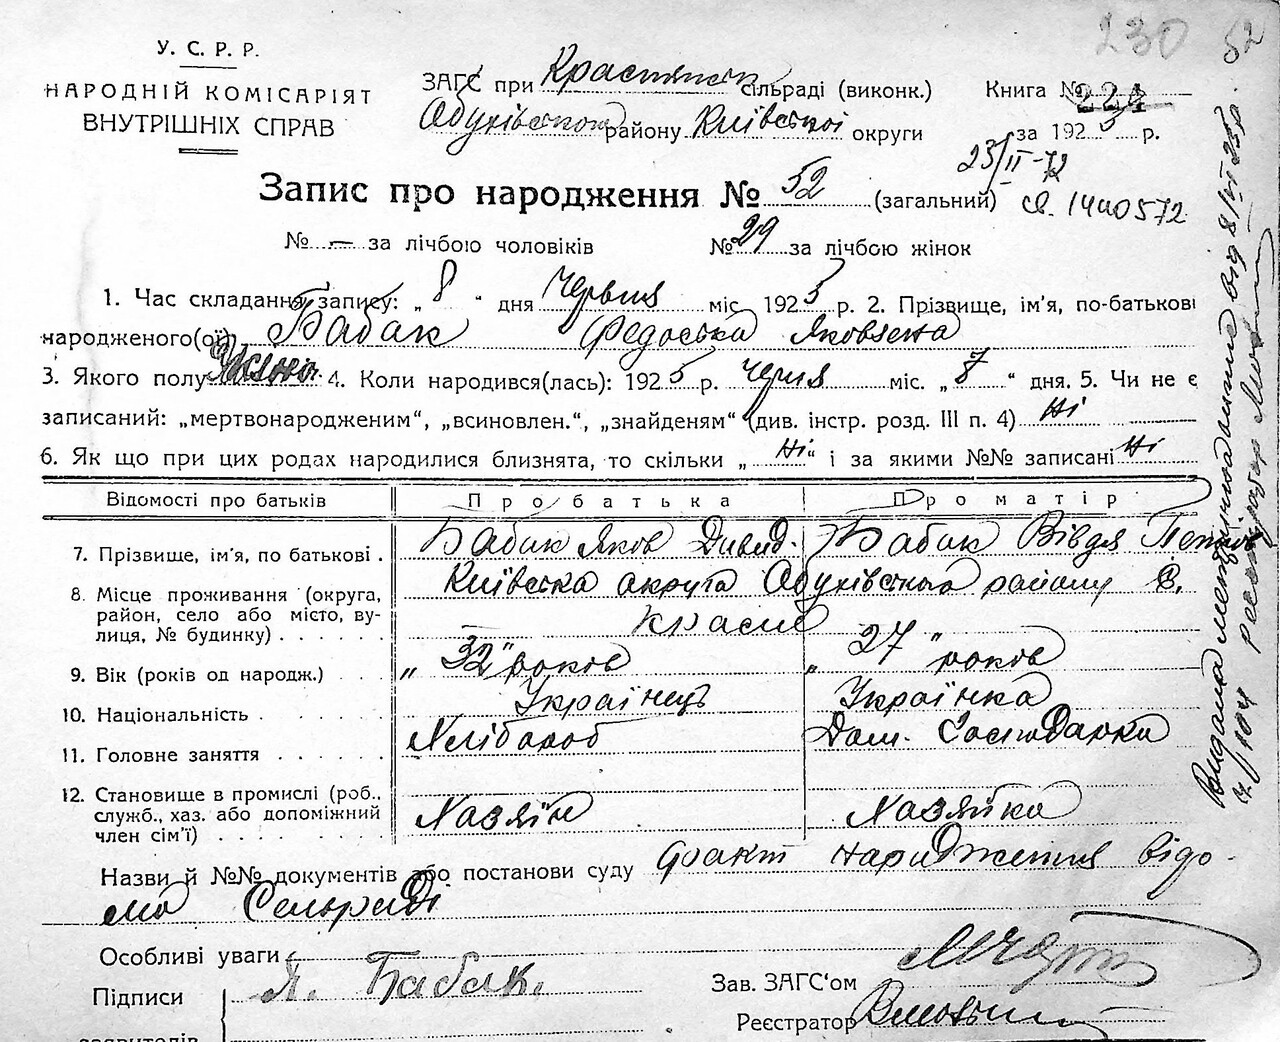 230
52
У. С. Р. Р.
НАРОДНІЙ КОМІСАРІЯТ
ВНУТРІШНІХ СПРАВ
ЗАГС при сільраді (виконк.) Книга № 224
Обухівського району Київської округи за 1925 р.
23/II-72
Запис про народження № 52 (загальний)
св. 1400572
№ — за лічбою чоловіків № 29 за лічбою жінок
1. Час складання запису: „ 8 " дня Червня міс. 1925 р. 2. Прізвище, ім'я, по-батькові
народженого(ої) Бабак Федоська Яковлена
3. Якого полу Жіно 4. Коли народився(лась): 1925 р. Черня міс. „ 7 " дня. 5. Чи не є
записаний: „мертвонародженим", „всиновлен.", „знайденям" (див. інстр. розд. III п. 4) Ні
6. Як що при цих родах народилися близнята, то скільки „ Ні " і за якими №№ записані Ні
Відомості про батьків Про батька Про матір
7. Прізвище, ім'я, по батькові . Бабак Яков Давид. Бабак Вівдя
8. Місце проживання (округа, район, село або місто, вулиця, № будинку) Київська округа Обухівського району С.
Красне
9. Вік (років од народж.) „ 32 " років „ 27 " років
10. Національність Українець Українка
11. Головне заняття Хлібороб Дом. Господарка
12. Становище в промислі (роб., служб., хаз. або допоміжний член сім'ї) Хазяїн Хазяйка
Назви й №№ документів або постанови суду факт народження відо-
мо Сельраді
Особливі уваги
Підписи Я. Бабак.
заявителів
Зав. ЗАГС'ом
Реєстратор